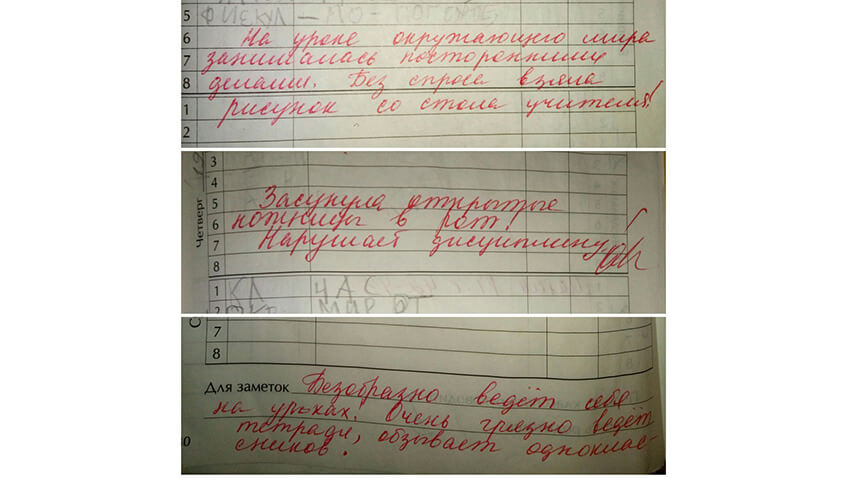 5 ФИЗКУЛ — НО —
6 На уроке окружающего мира
7 занималась посторонними
8 делами. Без спроса взяла
1 рисунок со стола учителя!
2
3
4
Четверг
5 Засунула открытые
6 ножницы в рот!
7 Нарушает дисциплину!
8
1 КЛ ЧА
2 МИР ОТ
С
7
8
Для заметок Безобразно ведёт себя
на уроках! Очень грязно ведёт
тетради, обзывает одноклас-
сников.